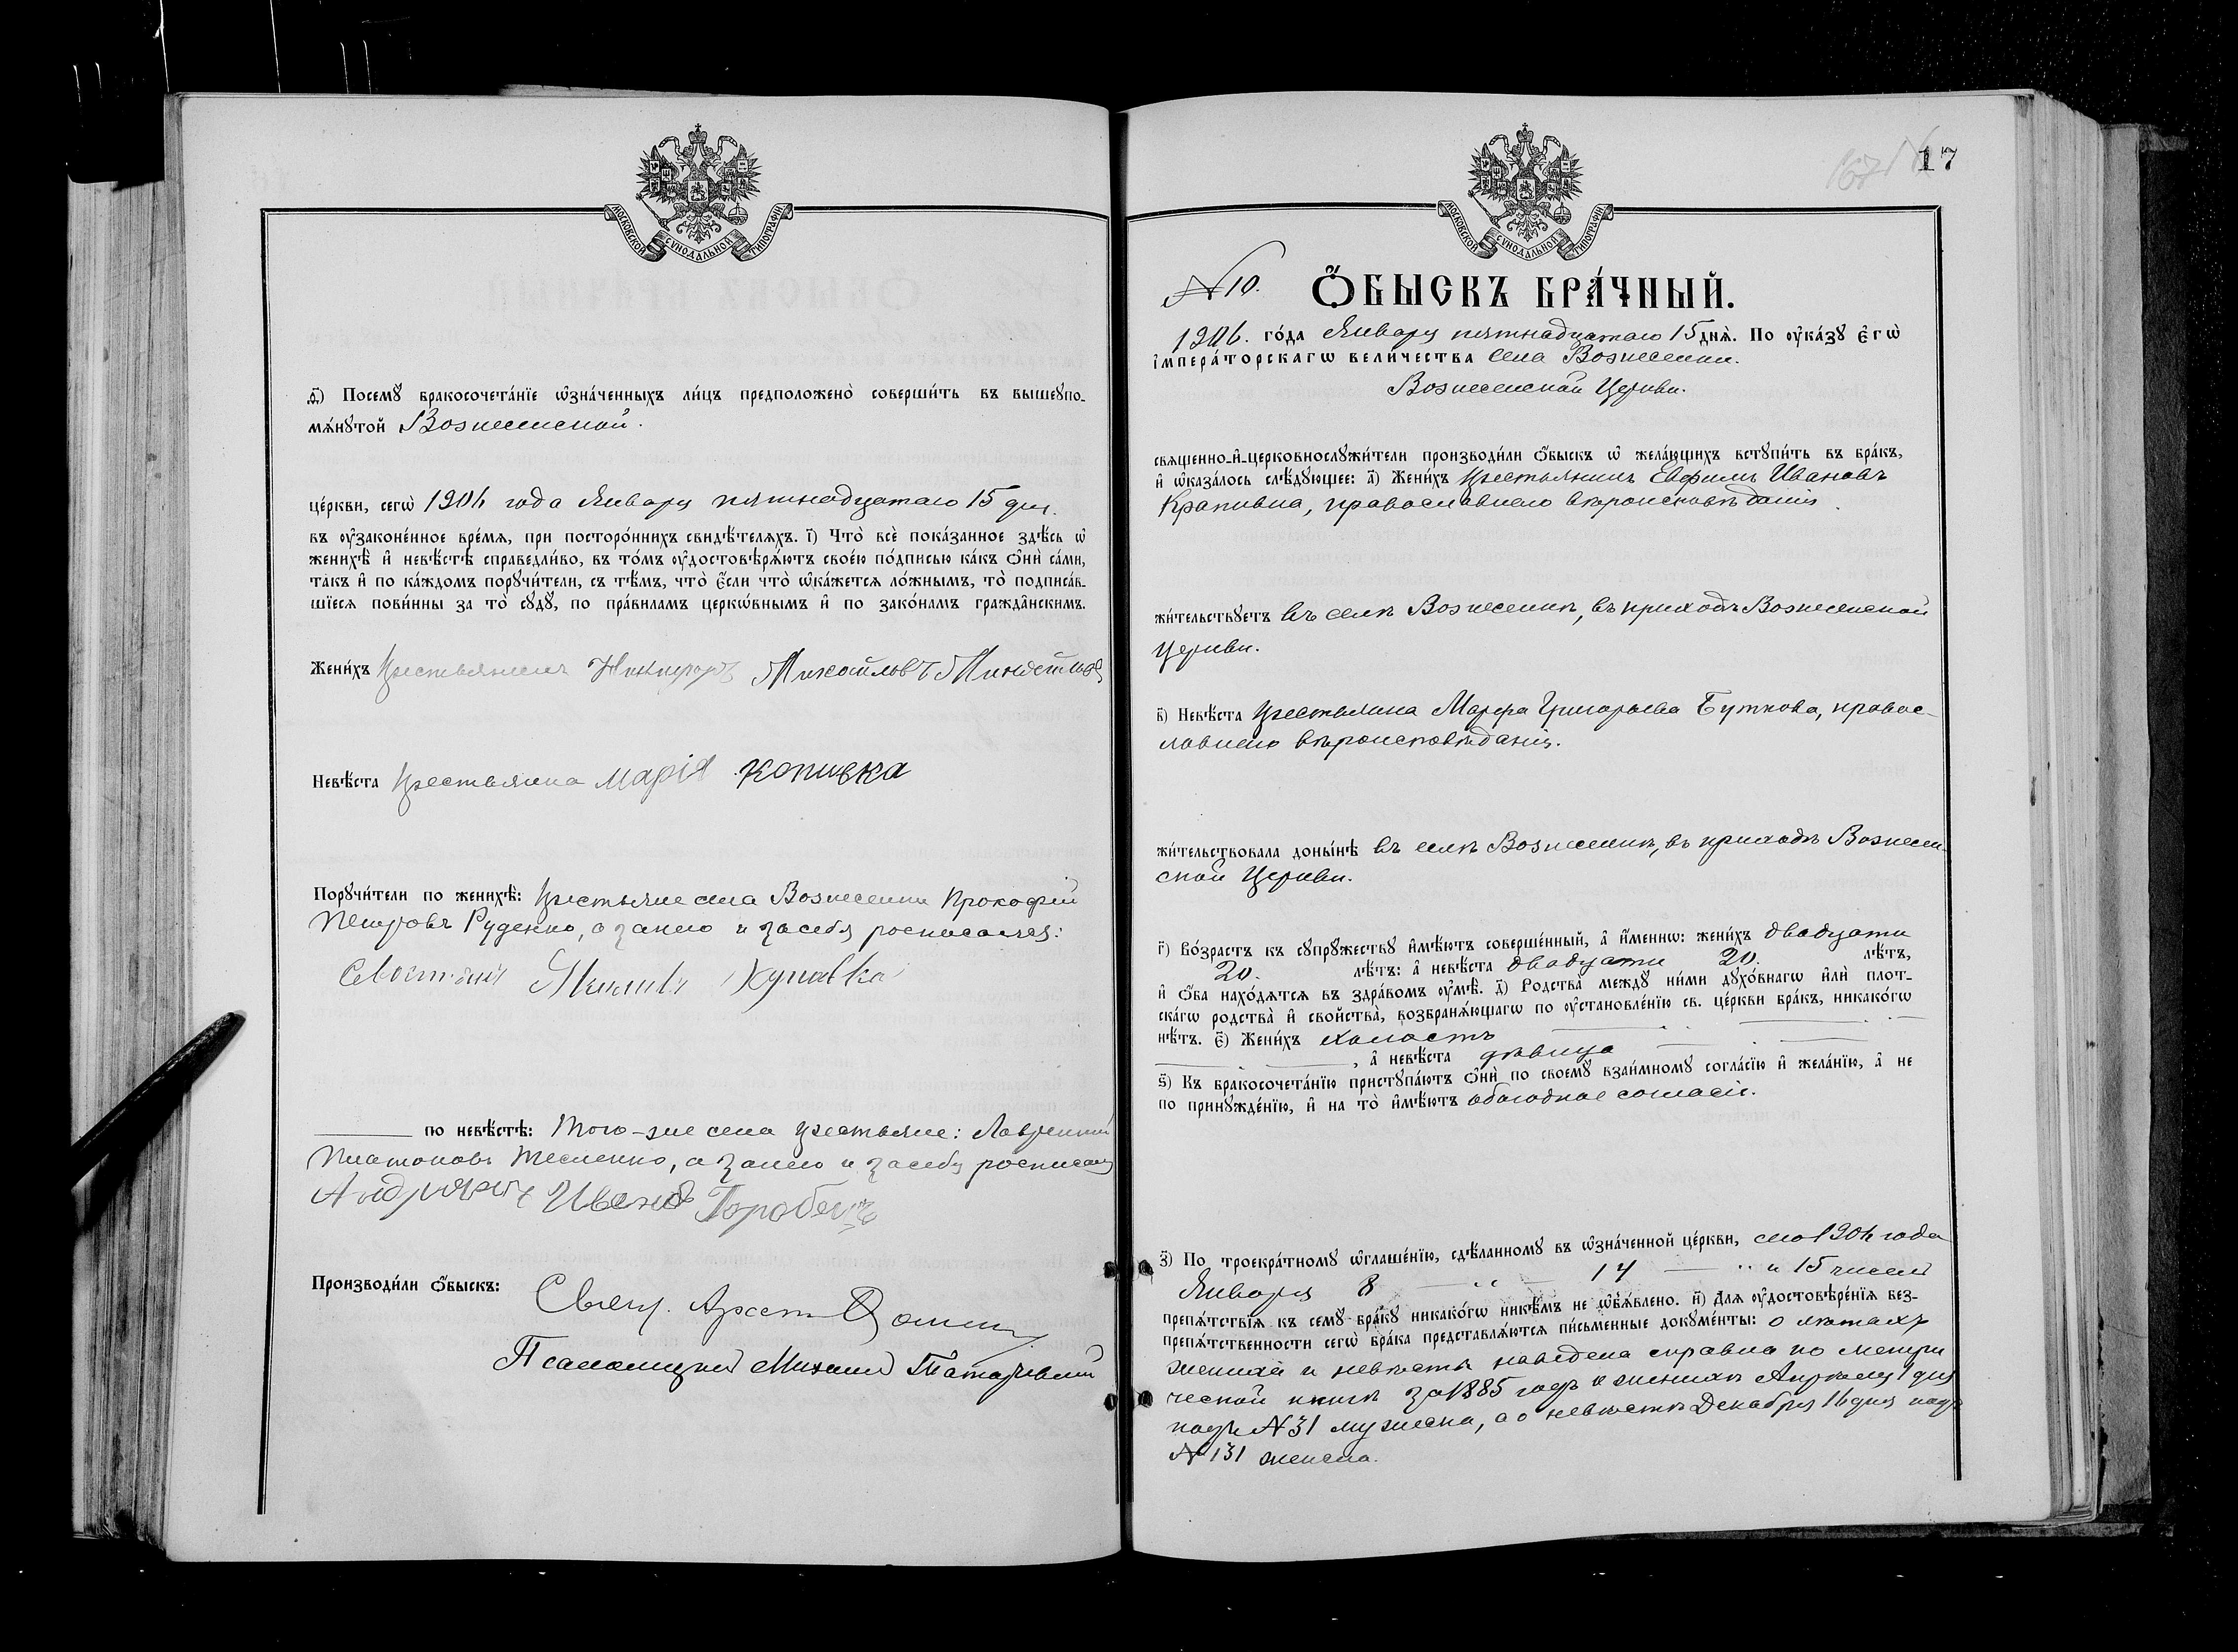 МОСКОВСКОЙ СѴНОДАЛЬНОЙ ТИПОГРАФІИ
ѳ҃) Посемꙋ бракосочета́нїе ѡ҆зна́ченныхъ ли́цъ предположено̀ соверши́ть въ вышеꙋпо-
мѧ́нꙋтой Вознесенской.
це́ркви, сегѡ̀ 1906 года Января пятнадцатаго 15 дня.
въ оу҆законе́нное вре́мѧ, при посторо́ннихъ свидѣ́телѧхъ. і҃) Что̀ всѐ пока́занное здѣ́сь ѡ҆
женихѣ̀ и҆ невѣ́стѣ справедли́во, въ то́мъ оу҆достовѣрѧ́ютъ свое́ю по́дписью ка́къ ѻ҆нѝ са́ми,
та́къ и҆ по ка́ждомъ порꙋчи́тели, съ тѣ́мъ, что̀ є҆́сли что̀ ѡ҆ка́жетсѧ ло́жнымъ, то̀ подписа́в-
шїесѧ пови́нны за то̀ сꙋдꙋ̀, по пра́виламъ церкѡ́внымъ и҆ по зако́намъ гражда̑нскимъ.
Жени́хъ Крестьянинъ Никифоръ Михайловъ
Невѣ́ста Крестьянка Марія Копивка
Порꙋчи́тели по женихѣ̀: Крестьяне села Вознесенки Прокофій
Петровъ Руденко, а за него и за себя росписался:
Севостьян Якимивъ
по невѣ́стѣ: Того-же села Крестьяне: Лаврентій
Платоновъ Тесленко, а за него и за себя росписался
Андрианъ Ивановъ Горобець
Производи́ли ѻ҆́быскъ: Свящ.
Псаломщикъ Михаилъ
МОСКОВСКОЙ СѴНОДАЛЬНОЙ ТИПОГРАФІИ
17
№ 10. Ѻ҆́БЫСКЪ БРА́ЧНЫЙ.
1906. го́да Января пятнадцатаго 15 днѧ̀. По оу҆ка́зꙋ є҆гѡ̀
і҆мпера́торскагѡ вели́чества села Вознесенки.
Вознесенской Церкви.
свѧще́нно-и҆-церковнослꙋжи́тели производи́ли ѻ҆́быскъ ѡ҆ жела́ющихъ встꙋпи́ть въ бра́къ,
и҆ ѡ҆каза́лось слѣ́дꙋющее: а҃) Жени́хъ Крестьянинъ Евфимъ Ивановъ
Крапивка, православнаго вѣроисповѣданія.
жи́тельствꙋетъ въ селѣ Вознесенкѣ, въ приходѣ Вознесенской
Церкви.
в҃) Невѣ́ста Крестьянка Марфа Григорьева Буткова, правос-
лавнаго вѣроисповѣданія.
жи́тельствовала доны́нѣ въ селѣ Вознесенкѣ, въ приходѣ Вознесен
ской Церкви.
г҃) Во́зрастъ къ сꙋпрꙋ́жествꙋ и҆мѣ́ютъ соверше́нный, а҆ и҆́менно: жени́хъ двадцати
20. лѣ́тъ: а҆ невѣ́ста двадцати 20. лѣ́тъ,
и҆ ѻ҆́ба нахо́дѧтсѧ въ здра́вомъ оу҆мѣ̀. д҃) Родства̀ междꙋ ни́ми дꙋхо́внагѡ и҆лѝ пло́т-
скагѡ родства̀ и҆ сво́йства, возбранѧ́ющагѡ по оу҆становле́нїю св. це́ркви бра́къ, никако́гѡ
нѣ́тъ. є҃) Жени́хъ холостъ
, а҆ невѣ́ста дѣвица
ѕ҃) Къ бракосочета́нїю пристꙋпа́ютъ ѻ҆нѝ по своемꙋ̀ взаи́мномꙋ согла́сїю и҆ жела́нїю, а҆ не
по принꙋжде́нїю, и҆ на то̀ и҆мѣ́ютъ обоюдное согласіе.
з҃) По троекра́тномꙋ ѡ҆глаше́нїю, сдѣ́ланномꙋ въ ѡ҆зна́ченной це́ркви, сего 1906 года
Января 8 — " — 14 — " и 15 чиселъ
препѧ́тствїѧ къ семꙋ̀ бра́кꙋ никако́гѡ никѣ́мъ не ѡ҆б̾ѧ́влено. и҃) Длѧ оу҆достовѣре́нїѧ без-
препѧ́тственности сегѡ̀ бра́ка представлѧ́ютсѧ пи́сьменные докꙋме́нты: о лѣтахъ
жениха и невѣсты наведена справка по метри
ческой книгѣ за 1885 годъ о женихѣ Апрѣля 1 дня
подъ № 31 мужеска, а о невѣстѣ Декабря 16 дня подъ
№ 131 женска.